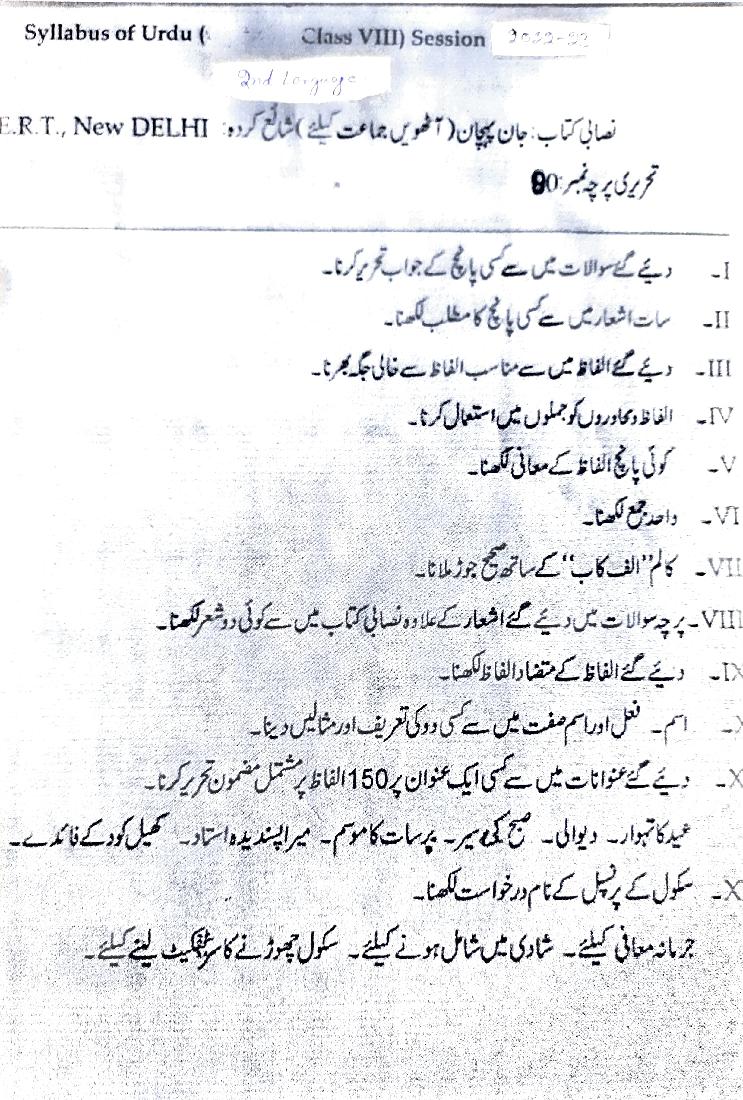 Syllabus of Urdu ( Class VIII) Session 2022-23
2nd Language
نصابی کتاب: جان پہچان (آٹھویں جماعت کیلئے) شائع کردہ: E.R.T., New DELHI
تحریری پرچہ نمبر: 90
I۔ دیئے گئے سوالات میں سے کسی پانچ کے جواب تحریر کرنا۔
II۔ سات اشعار میں سے کسی پانچ کا مطلب لکھنا۔
III۔ دیئے گئے الفاظ میں سے مناسب الفاظ سے خالی جگہ بھرنا۔
IV۔ الفاظ و محاوروں کو جملوں میں استعمال کرنا۔
V۔ کوئی پانچ الفاظ کے معانی لکھنا۔
VI۔ واحد جمع لکھنا۔
VII۔ کالم "الف کاب" کے ساتھ صحیح جوڑ ملانا۔
VIII۔ پرچہ سوالات میں دیئے گئے اشعار کے علاوہ نصابی کتاب میں سے کوئی دو شعر لکھنا۔
IX۔ دیئے گئے الفاظ کے متضاد الفاظ لکھنا۔
X۔ اسم۔ فعل اور اسم صفت میں سے کسی دو کی تعریف اور مثالیں دینا۔
X۔ دیئے گئے عنوانات میں سے کسی ایک عنوان پر 150 الفاظ پر مشتمل مضمون تحریر کرنا۔
عید کا تہوار۔ دیوالی۔ صبح کی سیر۔ برسات کا موسم۔ میرا پسندیدہ استاد۔ کھیل کود کے فائدے۔
X۔ سکول کے پرنسپل کے نام درخواست لکھنا۔
جرمانہ معافی کیلئے۔ شادی میں شامل ہونے کیلئے۔ سکول چھوڑنے کا سرٹیفکیٹ لینے کیلئے۔